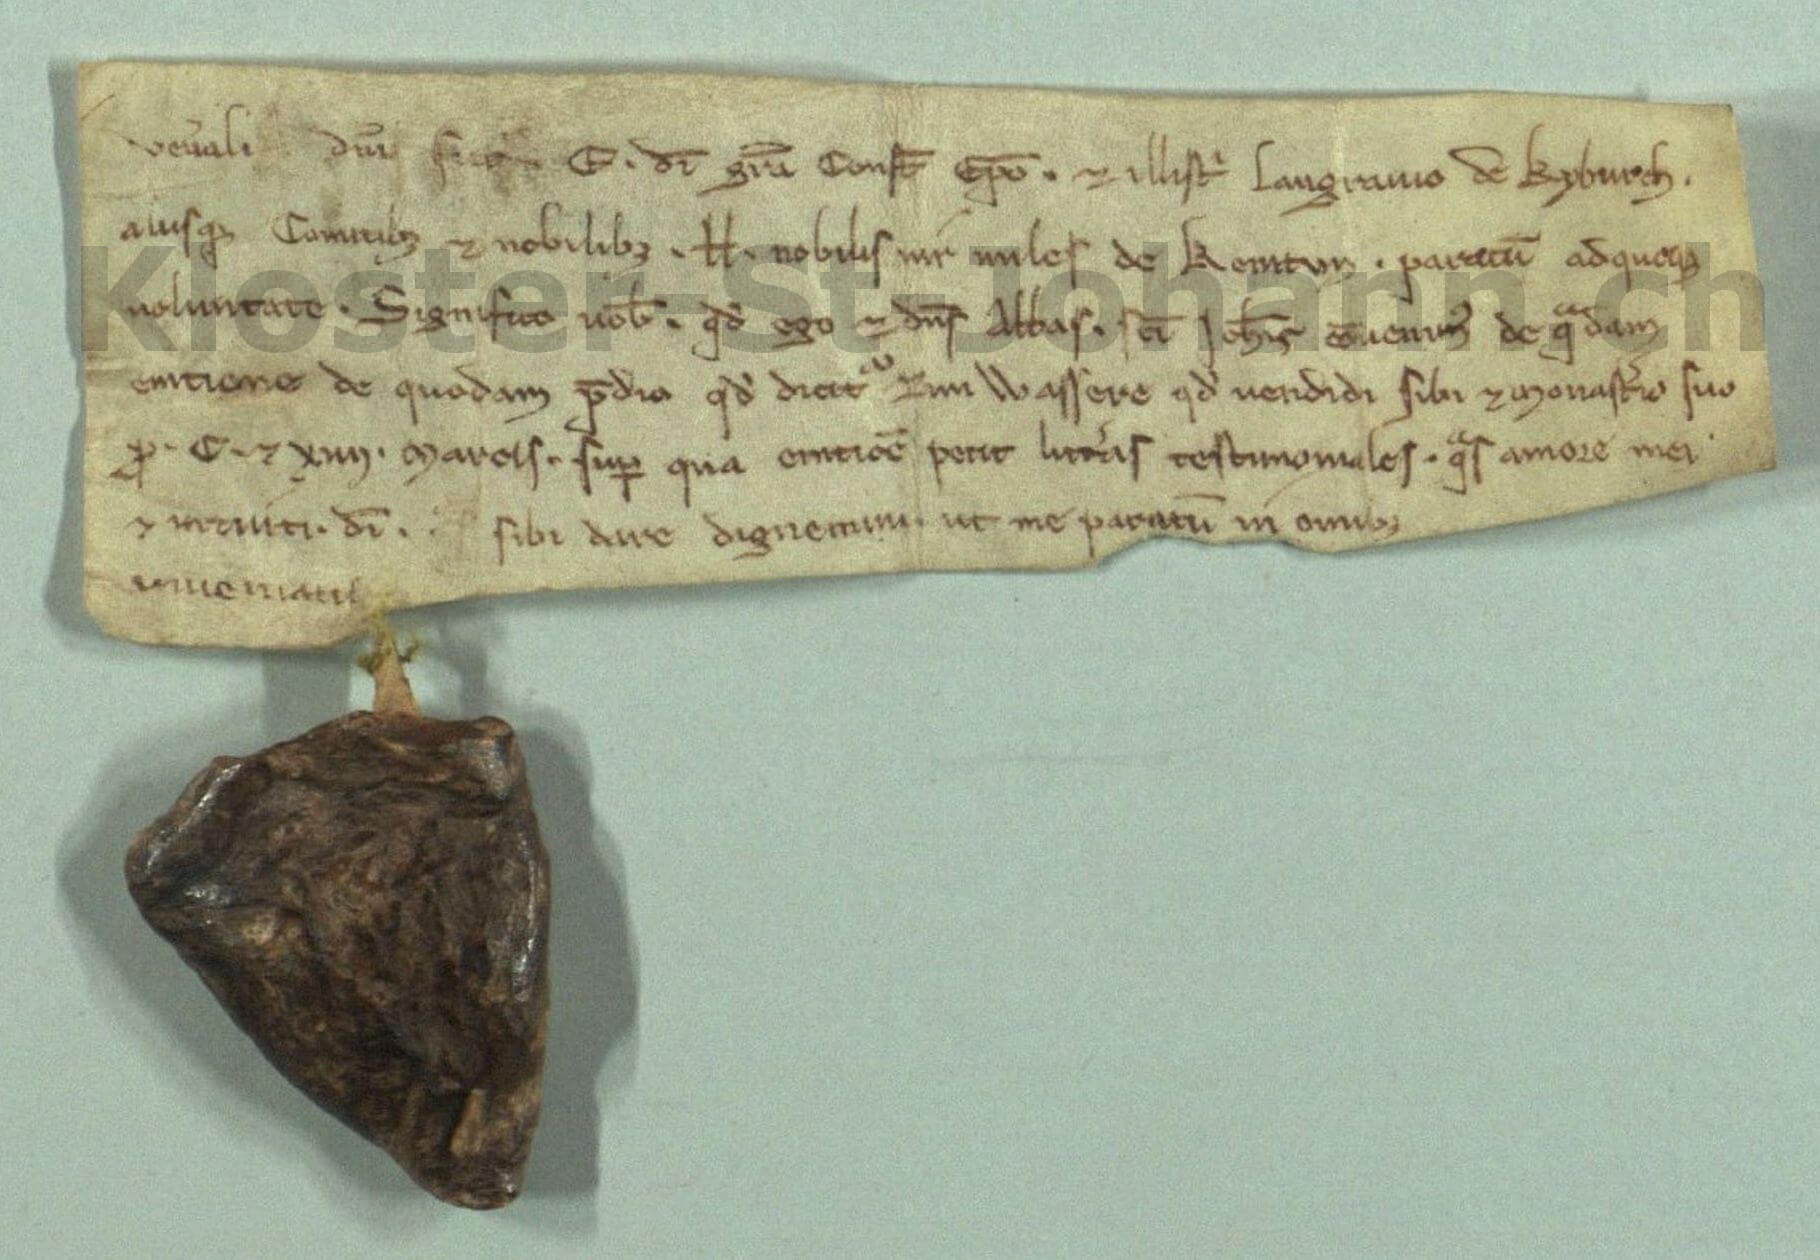 dn̄i E · di gr̄a Const̄ Ep̄o · ⁊ illustri Langravio de Kyburch ·
aliisq; Comitib; ⁊ nobilib; · H · nobilis vir miles de Kemtun · paratū ad queq;
voluntate · Significo vob̄ · qd̄ ego ⁊ dn̄s Abbas · sc̄i Joh̄is de qᵃdam
emtione de quodam p̄dio qd̄ dicit Wassere qd̄ vendidi sibi ⁊ monast̄io suo
ꝓ · C · ⁊ XIIII · Marcis · suꝑ qua emtiōe petit litt̄as testimoniales · qᵃs amore mei
⁊ di · sibi dare dignemini · ut me paratū in omnib;
inveniatis
Kloster-St-Johann.ch